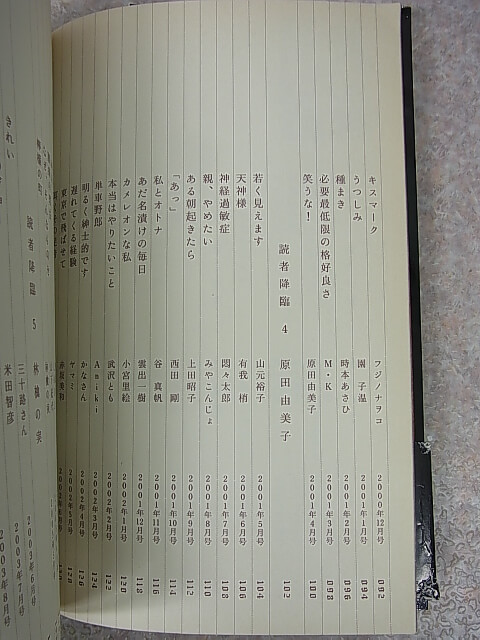 キスマーク フジノナヲコ 2000年12月号 092
うつしみ 園 子温 2001年1月号 094
種まき 時本あさひ 2001年2月号 096
必要最低限の格好良さ M・K 2001年3月号 098
笑うな! 原田由美子 2001年4月号 100
読者降臨 4 原田由美子 102
若く見えます 山元裕子 2001年5月号 104
天神様 有我 梢 2001年6月号 106
神経過敏症 悶々太郎 2001年7月号 108
親、やめたい みやこんじょ 2001年8月号 110
ある朝起きたら 上田昭子 2001年9月号 112
「あっ」 西田 剛 2001年10月号 114
私とオトナ 谷 真帆 2001年11月号 116
あだ名漬けの毎日 雲出一樹 2001年12月号 118
カメレオンな私 小宮里絵 2002年1月号 120
本当はやりたいこと 武沢とも 2002年2月号 122
単車野郎 Aniki 2002年3月号 124
明るく紳士的です かなさん 2002年4月号 126
遅れてくる経験 ヤマミ 2002年5月号 128
東京で飛ばせて
読者降臨 5 林檎の実
三十路さん 2003年6月号
きれい 米田智彦 2003年7月号
2003年8月号